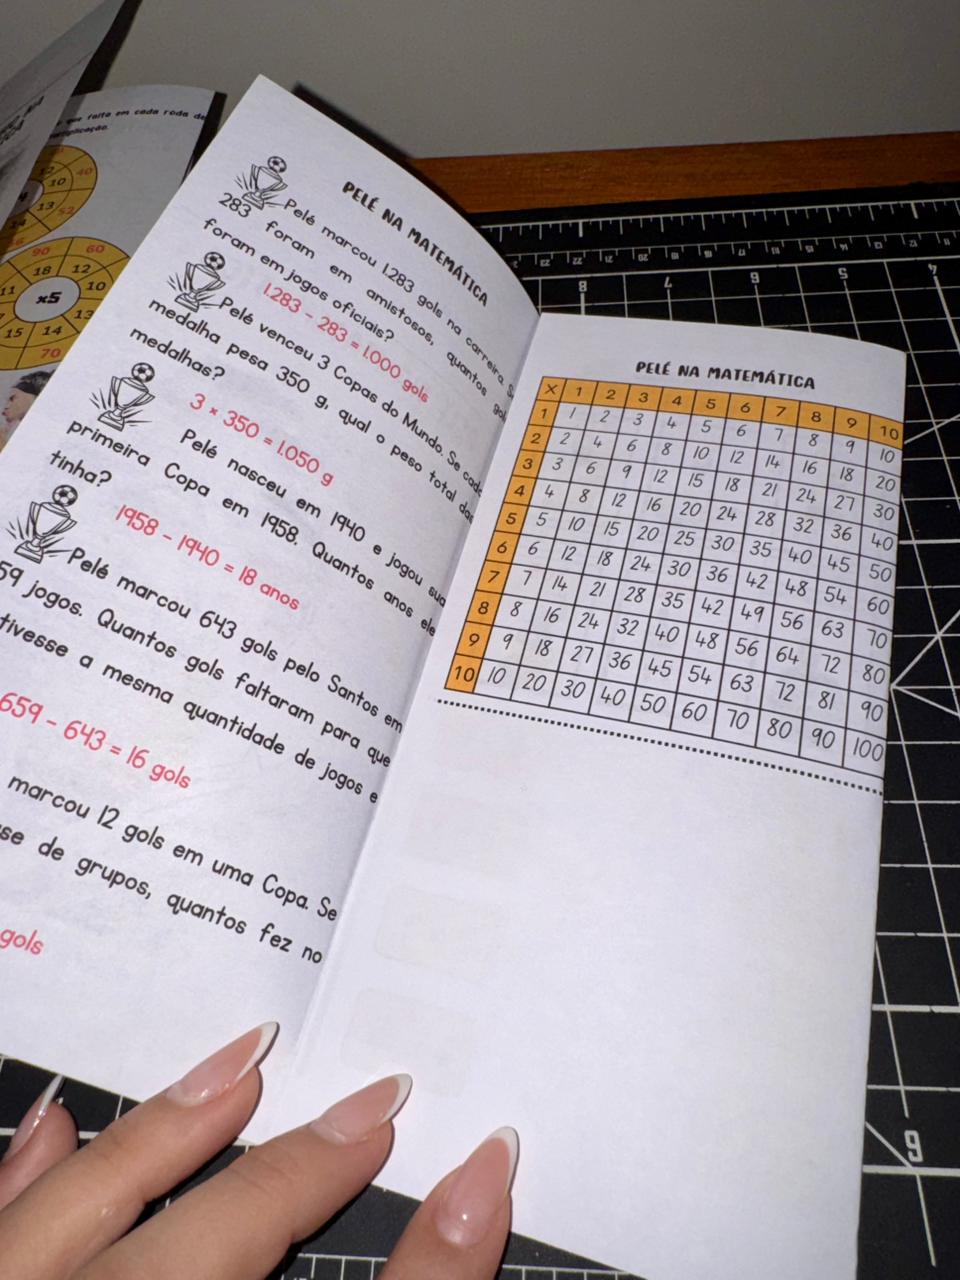 que falta em cada roda de
10
40
13
52
14
90
60
18
12
11
10
x5
13
15
14
70
PELÉ NA MATEMÁTICA
Pelé marcou 1.283 gols na carreira.
283 foram em amistosos, quantos
foram em jogos oficiais?
1.283 - 283 = 1.000 gols
Pelé venceu 3 Copas do Mundo. Se cada
medalha pesa 350 g, qual o peso total das
medalhas?
3 × 350 = 1.050 g
Pelé nasceu em 1940 e jogou sua
primeira Copa em 1958. Quantos anos ele
tinha?
1958 - 1940 = 18 anos
Pelé marcou 643 gols pelo Santos em
59 jogos. Quantos gols faltaram para que
tivesse a mesma quantidade de jogos e
659 - 643 = 16 gols
marcou 12 gols em uma Copa. Se
de grupos, quantos fez no
gols
PELÉ NA MATEMÁTICA
X 1 2 3 4 5 6 7 8 9 10
1 1 2 3 4 5 6 7 8 9 10
2 2 4 6 8 10 12 14 16 18 20
3 3 6 9 12 15 18 21 24 27 30
4 4 8 12 16 20 24 28 32 36 40
5 5 10 15 20 25 30 35 40 45 50
6 6 12 18 24 30 36 42 48 54 60
7 7 14 21 28 35 42 49 56 63 70
8 8 16 24 32 40 48 56 64 72 80
9 9 18 27 36 45 54 63 72 81 90
10 10 20 30 40 50 60 70 80 90 100
8
7
6
5
4
6